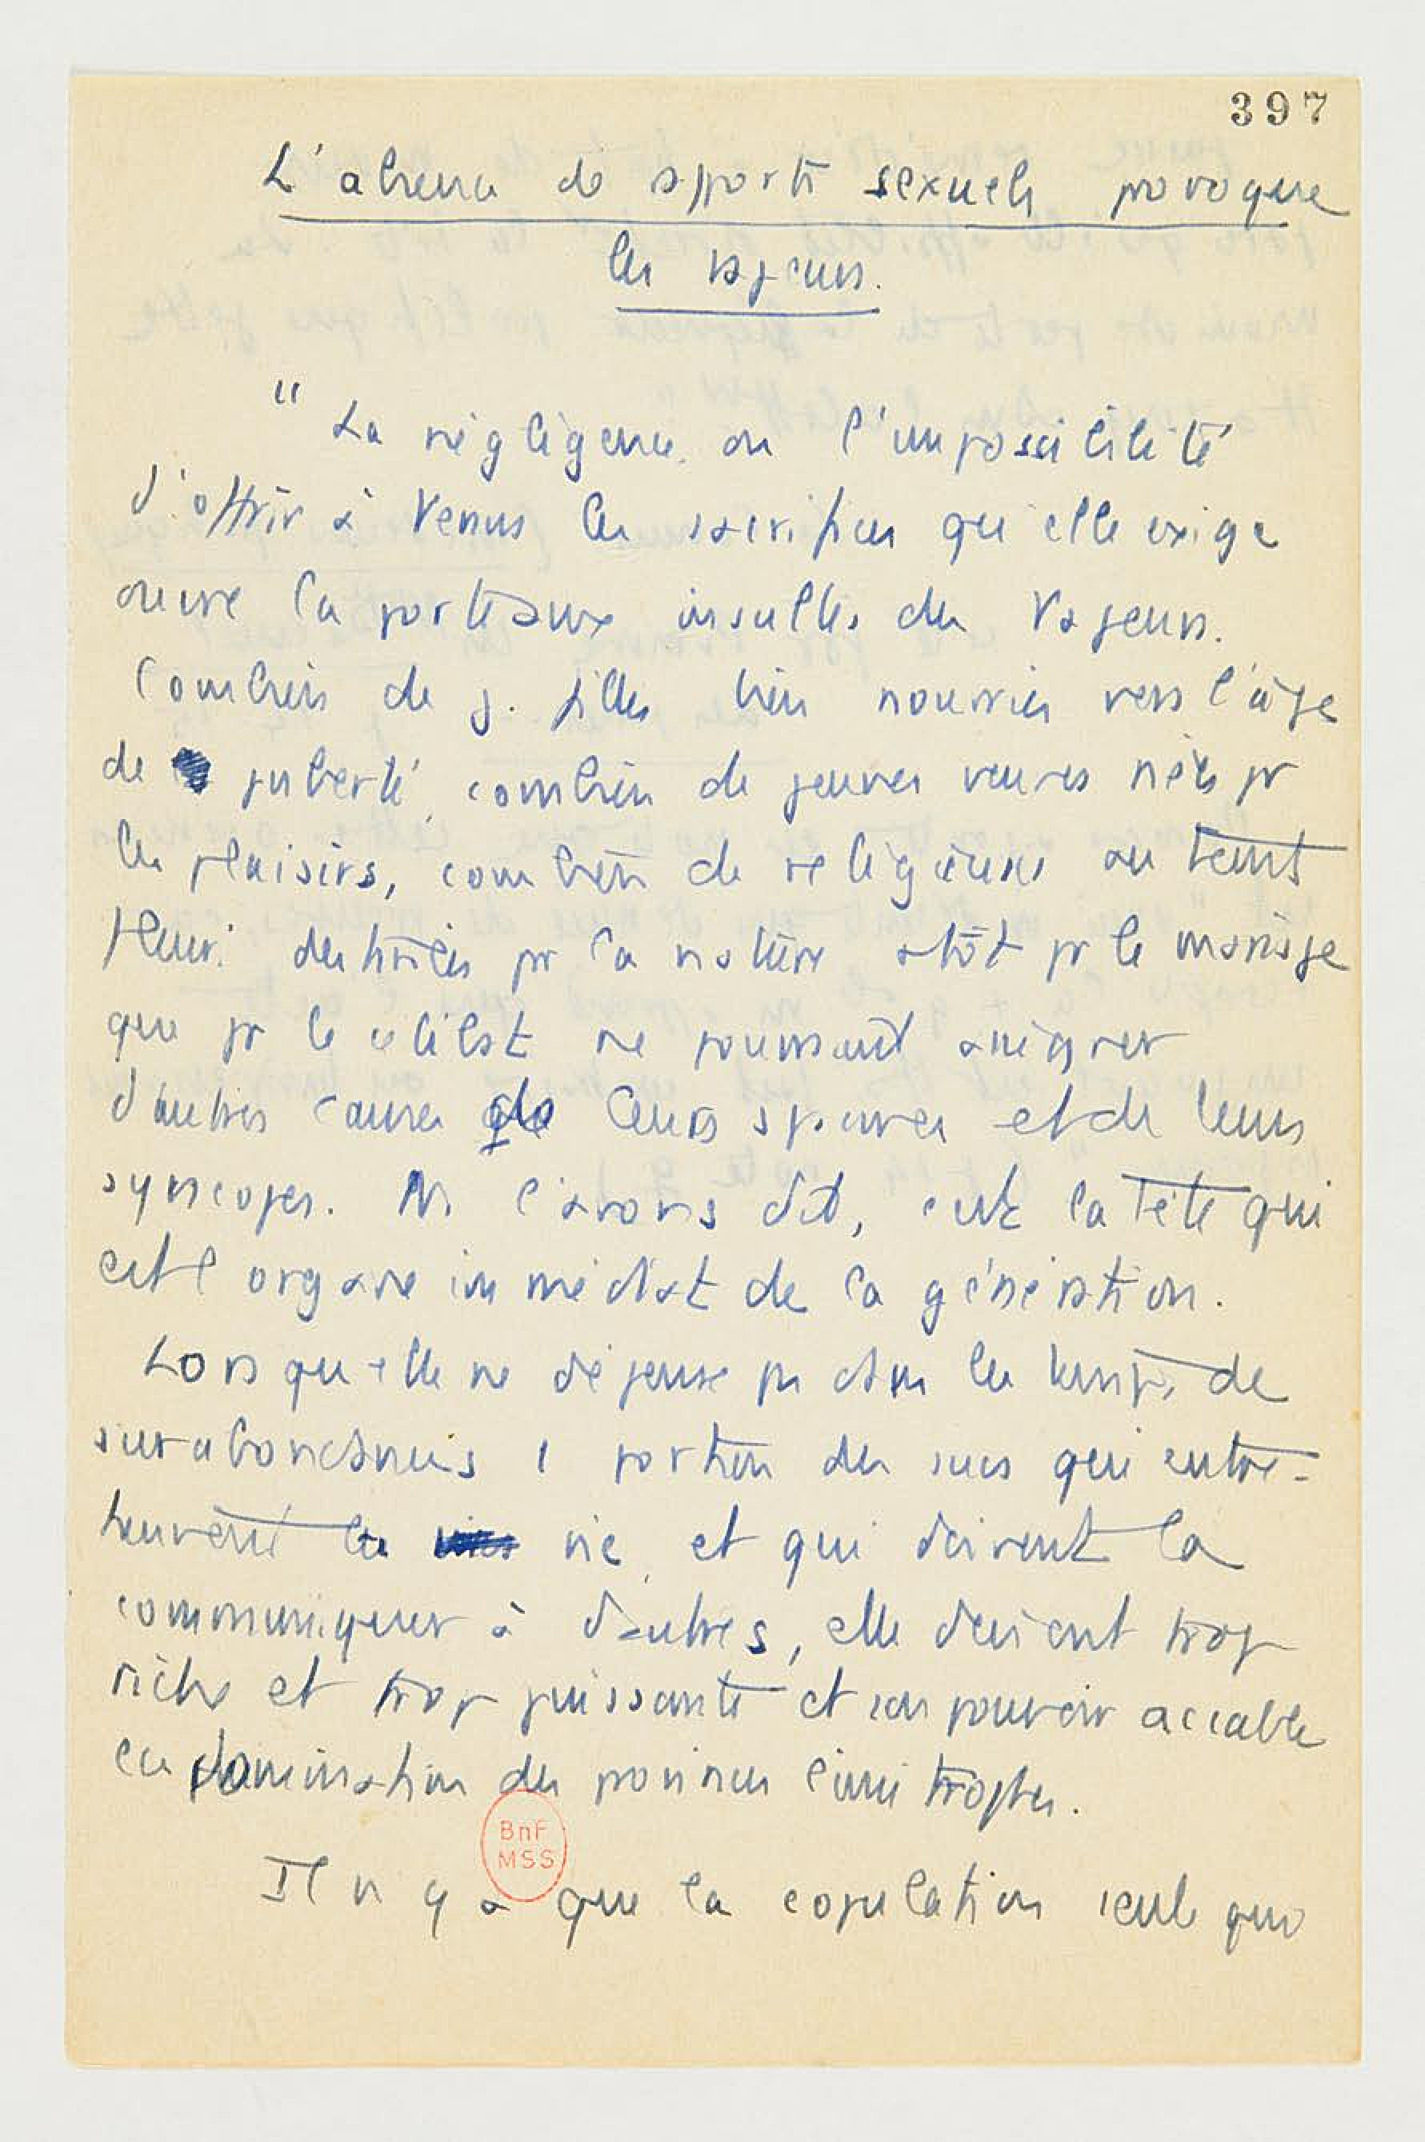 397
L'absence de rapports sexuels provoque
les vapeurs.
" La négligence ou l'impossibilité
d'offrir à Venus les sacrifices qu'elle exige
ouvre la porte aux insultes des Vapeurs.
Combien de j. filles bien nourries vers l'âge
de puberté, combien de jeunes veuves nées pr
les plaisirs, combien de religieuses au teint
fleuri destinées pr la nature + tôt pr le mariage
que pr le célibat ne pourraient assigner
d'autres causes de leurs spasmes et de leurs
syncopes. Ns l'avons dit, c'est la tête qui
est l'organe immédiat de la génération.
Lorsqu'elle ne dépense pas dans les temps de
surabondances 1 portion des sucs qui entre-
tiennent la vie et qui doivent la
communiquer à d'autres, elle devient trop
riche et trop puissante et son pouvoir accable
la domination des provinces limitrophes.
BnF
MSS
Il n'y a que la copulation seule qui